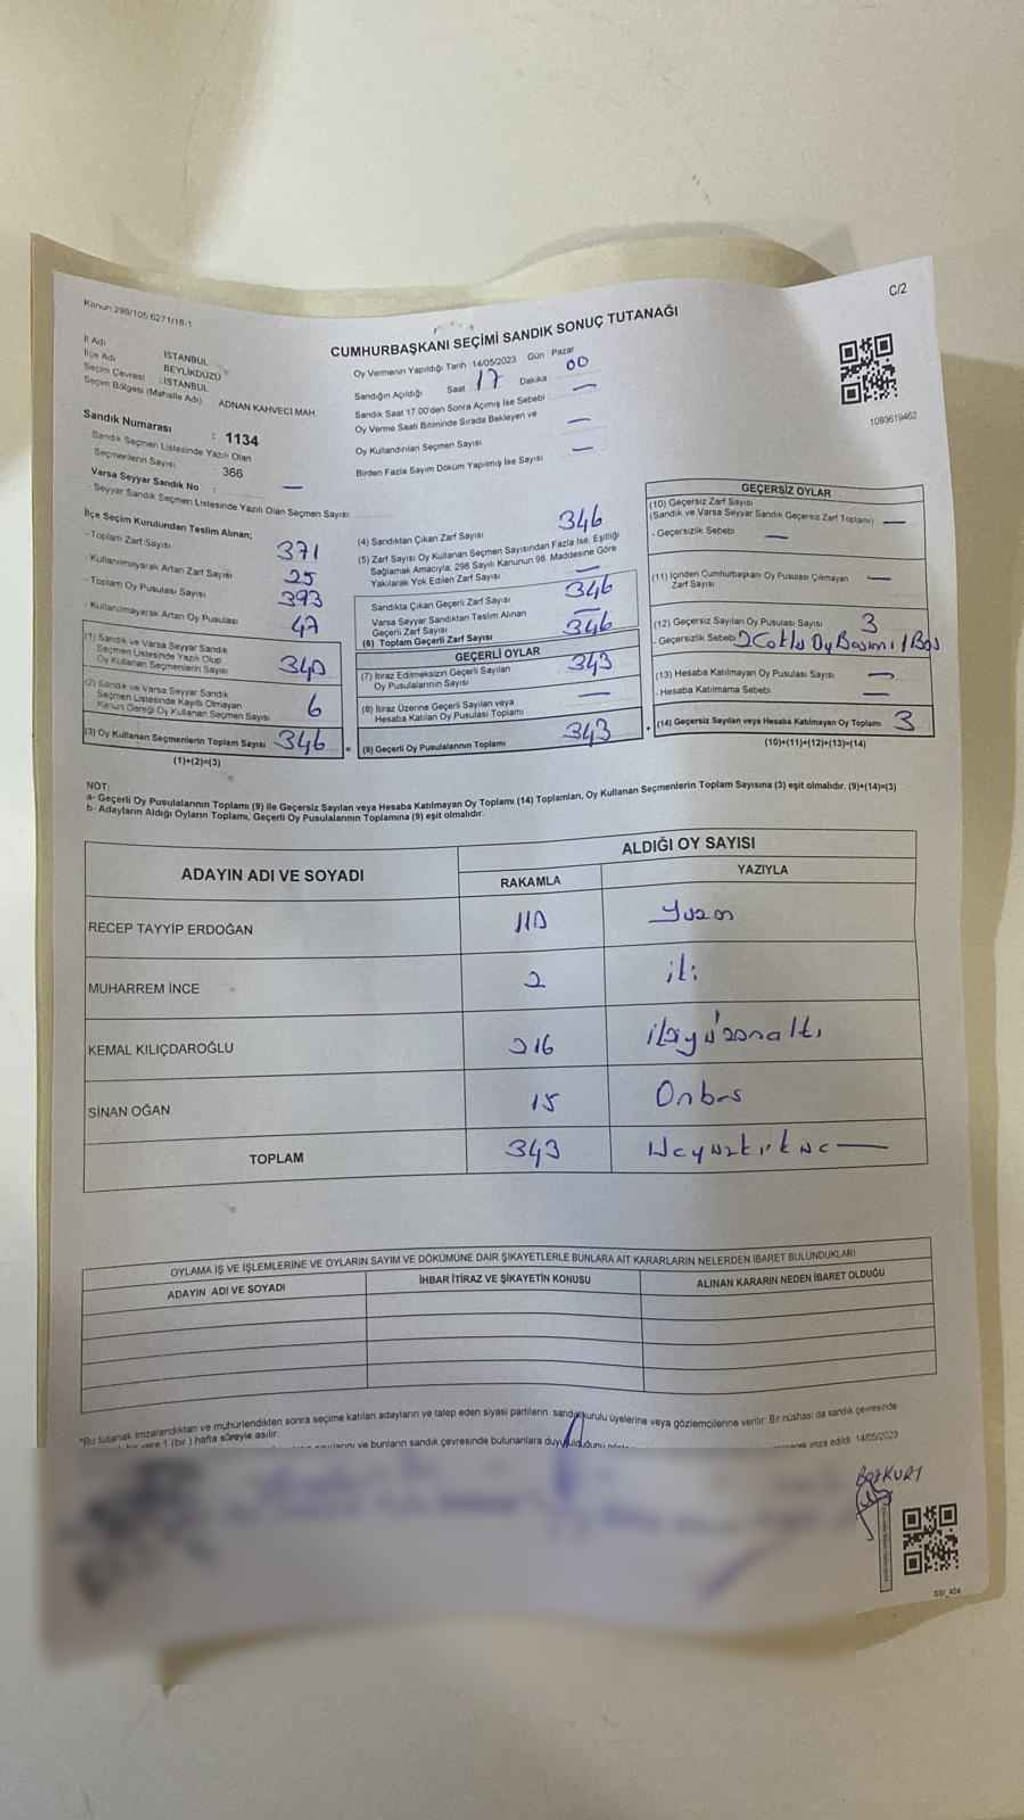 Kanun 298/105 6271/18-1
C/2
CUMHURBAŞKANI SEÇİMİ SANDIK SONUÇ TUTANAĞI
İl Adı İSTANBUL
İlçe Adı BEYLİKDÜZÜ
Seçim Çevresi : İSTANBUL
Seçim Bölgesi (Mahalle Adı) ADNAN KAHVECİ MAH.
Sandık Numarası : 1134
Sandık Seçmen Listesinde Yazılı Olan
Seçmenlerin Sayısı 366
Varsa Seyyar Sandık No : —
- Seyyar Sandık Seçmen Listesinde Yazılı Olan Seçmen Sayısı
Oy Vermenin Yapıldığı Tarih 14/05/2023 Gün Pazar
Sandığın Açıldığı Saat 17 Dakika 00
Sandık Saat 17.00'den Sonra Açılmış İse Sebebi —
Oy Verme Saati Bitiminde Sırada Bekleyen ve
Oy Kullandırılan Seçmen Sayısı —
Birden Fazla Sayım Döküm Yapılmış İse Sayısı —
1080619462
İlçe Seçim Kurulundan Teslim Alınan;
- Toplam Zarf Sayısı 371
- Kullanılmayarak Artan Zarf Sayısı 25
- Toplam Oy Pusulası Sayısı 393
- Kullanılmayarak Artan Oy Pusulası 47
(1) Sandık ve Varsa Seyyar Sandık
Seçmen Listesinde Yazılı Olup
Oy Kullanan Seçmenlerin Sayısı 340
(2) Sandık ve Varsa Seyyar Sandık
Seçmen Listesinde Kayıtlı Olmayan
Kanun Gereği Oy Kullanan Seçmen Sayısı 6
(3) Oy Kullanan Seçmenlerin Toplam Sayısı 346
(1)+(2)=(3)
(4) Sandıktan Çıkan Zarf Sayısı 346
(5) Zarf Sayısı Oy Kullanan Seçmen Sayısından Fazla İse, Eşitliği
Sağlamak Amacıyla, 298 Sayılı Kanunun 98. Maddesine Göre
Yakılarak Yok Edilen Zarf Sayısı —
Sandıkta Çıkan Geçerli Zarf Sayısı 346
Varsa Seyyar Sandıktan Teslim Alınan
Geçerli Zarf Sayısı —
(6) Toplam Geçerli Zarf Sayısı 346
GEÇERLİ OYLAR
(7) İtiraz Edilmeksizin Geçerli Sayılan
Oy Pusulalarının Sayısı 343
(8) İtiraz Üzerine Geçerli Sayılan veya
Hesaba Katılan Oy Pusulası Toplamı —
(9) Geçerli Oy Pusulalarının Toplamı 343
GEÇERSİZ OYLAR
(10) Geçersiz Zarf Sayısı
(Sandık ve Varsa Seyyar Sandık Geçersiz Zarf Toplamı) —
- Geçersizlik Sebebi —
(11) İçinden Cumhurbaşkanı Oy Pusulası Çıkmayan
Zarf Sayısı —
(12) Geçersiz Sayılan Oy Pusulası Sayısı 3
- Geçersizlik Sebebi 2 Çoklu Oy Basımı / Boş
(13) Hesaba Katılmayan Oy Pusulası Sayısı —
- Hesaba Katılmama Sebebi —
(14) Geçersiz Sayılan veya Hesaba Katılmayan Oy Toplamı 3
(10)+(11)+(12)+(13)=(14)
NOT:
a- Geçerli Oy Pusulalarının Toplamı (9) ile Geçersiz Sayılan veya Hesaba Katılmayan Oy Toplamı (14) Toplamları, Oy Kullanan Seçmenlerin Toplam Sayısına (3) eşit olmalıdır. (9)+(14)=(3)
b- Adayların Aldığı Oyların Toplamı, Geçerli Oy Pusulalarının Toplamına (9) eşit olmalıdır.
ADAYIN ADI VE SOYADI
ALDIĞI OY SAYISI
RAKAMLA YAZIYLA
RECEP TAYYİP ERDOĞAN 110 Yüzon
MUHARREM İNCE 2 iki
KEMAL KILIÇDAROĞLU 216 ikiyüzonaltı
SİNAN OĞAN 15 Onbeş
TOPLAM 343 Üçyüzkırküç —
OYLAMA İŞ VE İŞLEMLERİNE VE OYLARIN SAYIM VE DÖKÜMÜNE DAİR ŞİKAYETLERLE BUNLARA AİT KARARLARIN NELERDEN İBARET BULUNDUKLARI
ADAYIN ADI VE SOYADI
İHBAR İTİRAZ VE ŞİKAYETİN KONUSU
ALINAN KARARIN NEDEN İBARET OLDUĞU
*Bu tutanak imzalandıktan ve mühürlendikten sonra seçime katılan adayların ve talep eden siyasi partilerin sandık kurulu üyelerine veya gözlemcilerine verilir. Bir nüshası da sandık çevresinde
1 (bir) hafta süreyle asılır.
ve bunların sandık çevresinde bulunanlara duyurulduğunu
imza edildi 14/05/2023
BOZKURT